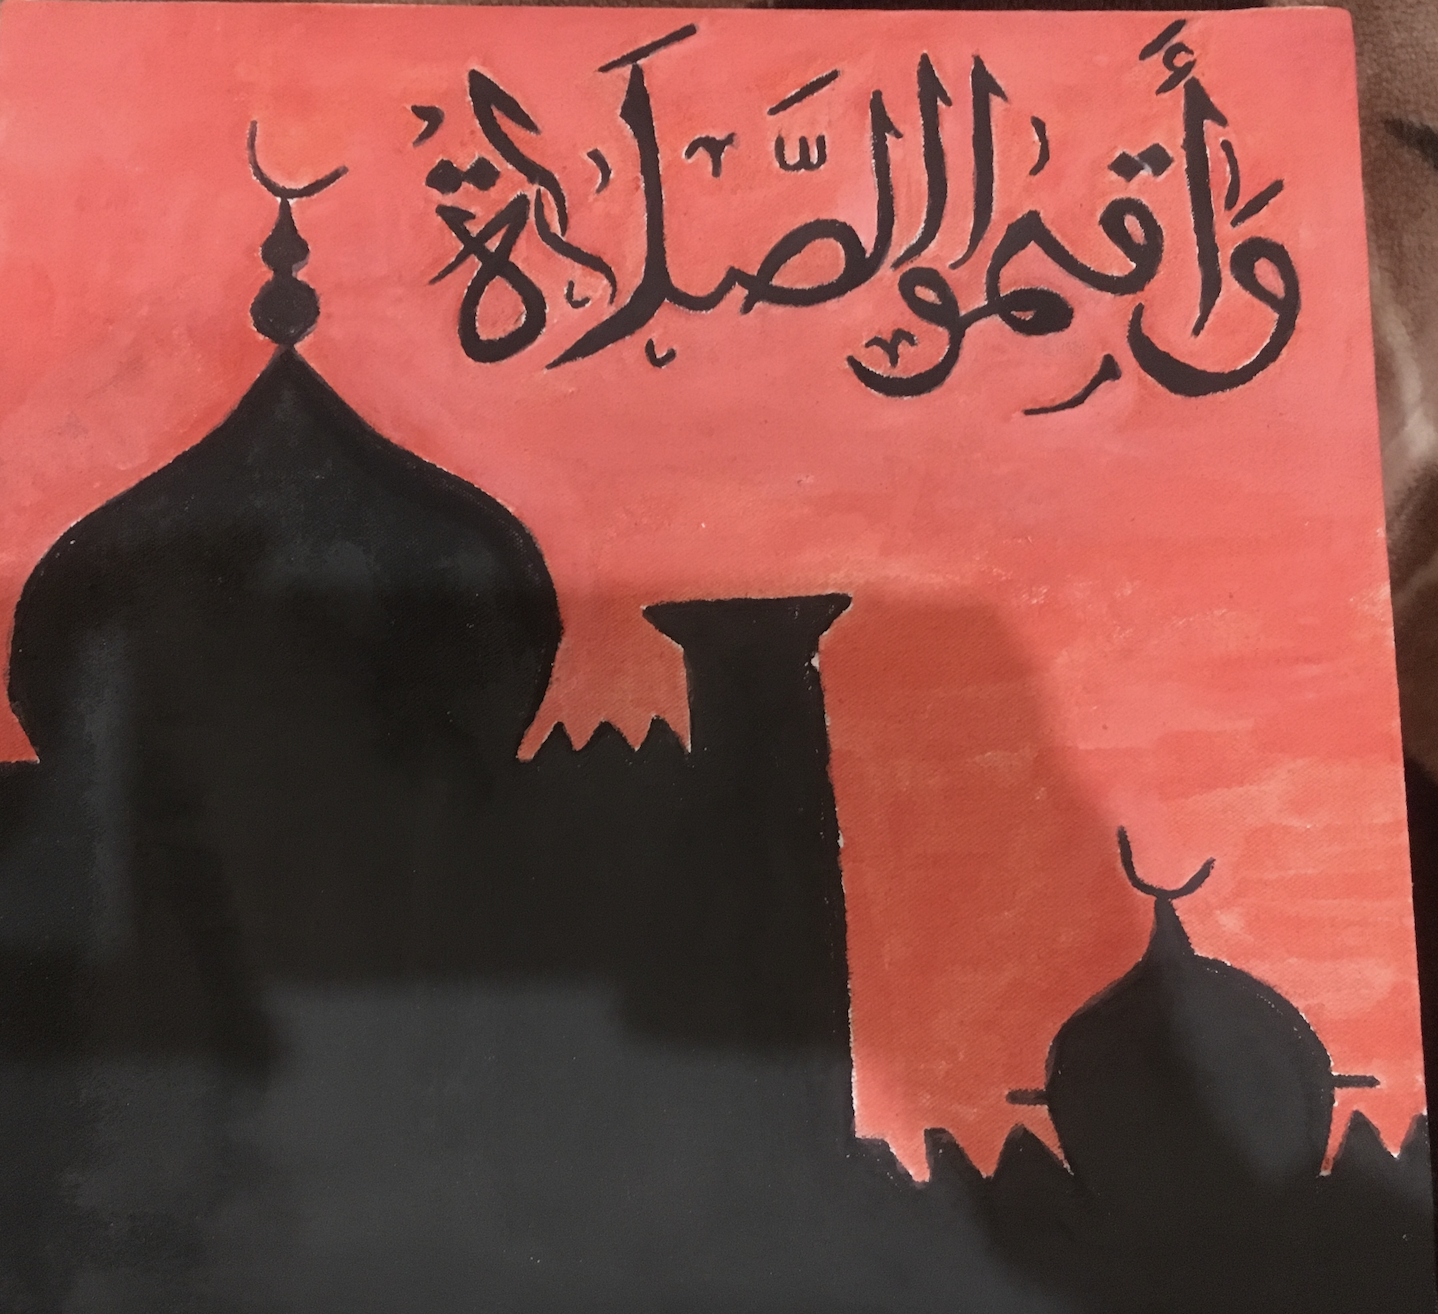 وَأَقِمُوا الصَّلَاةَ